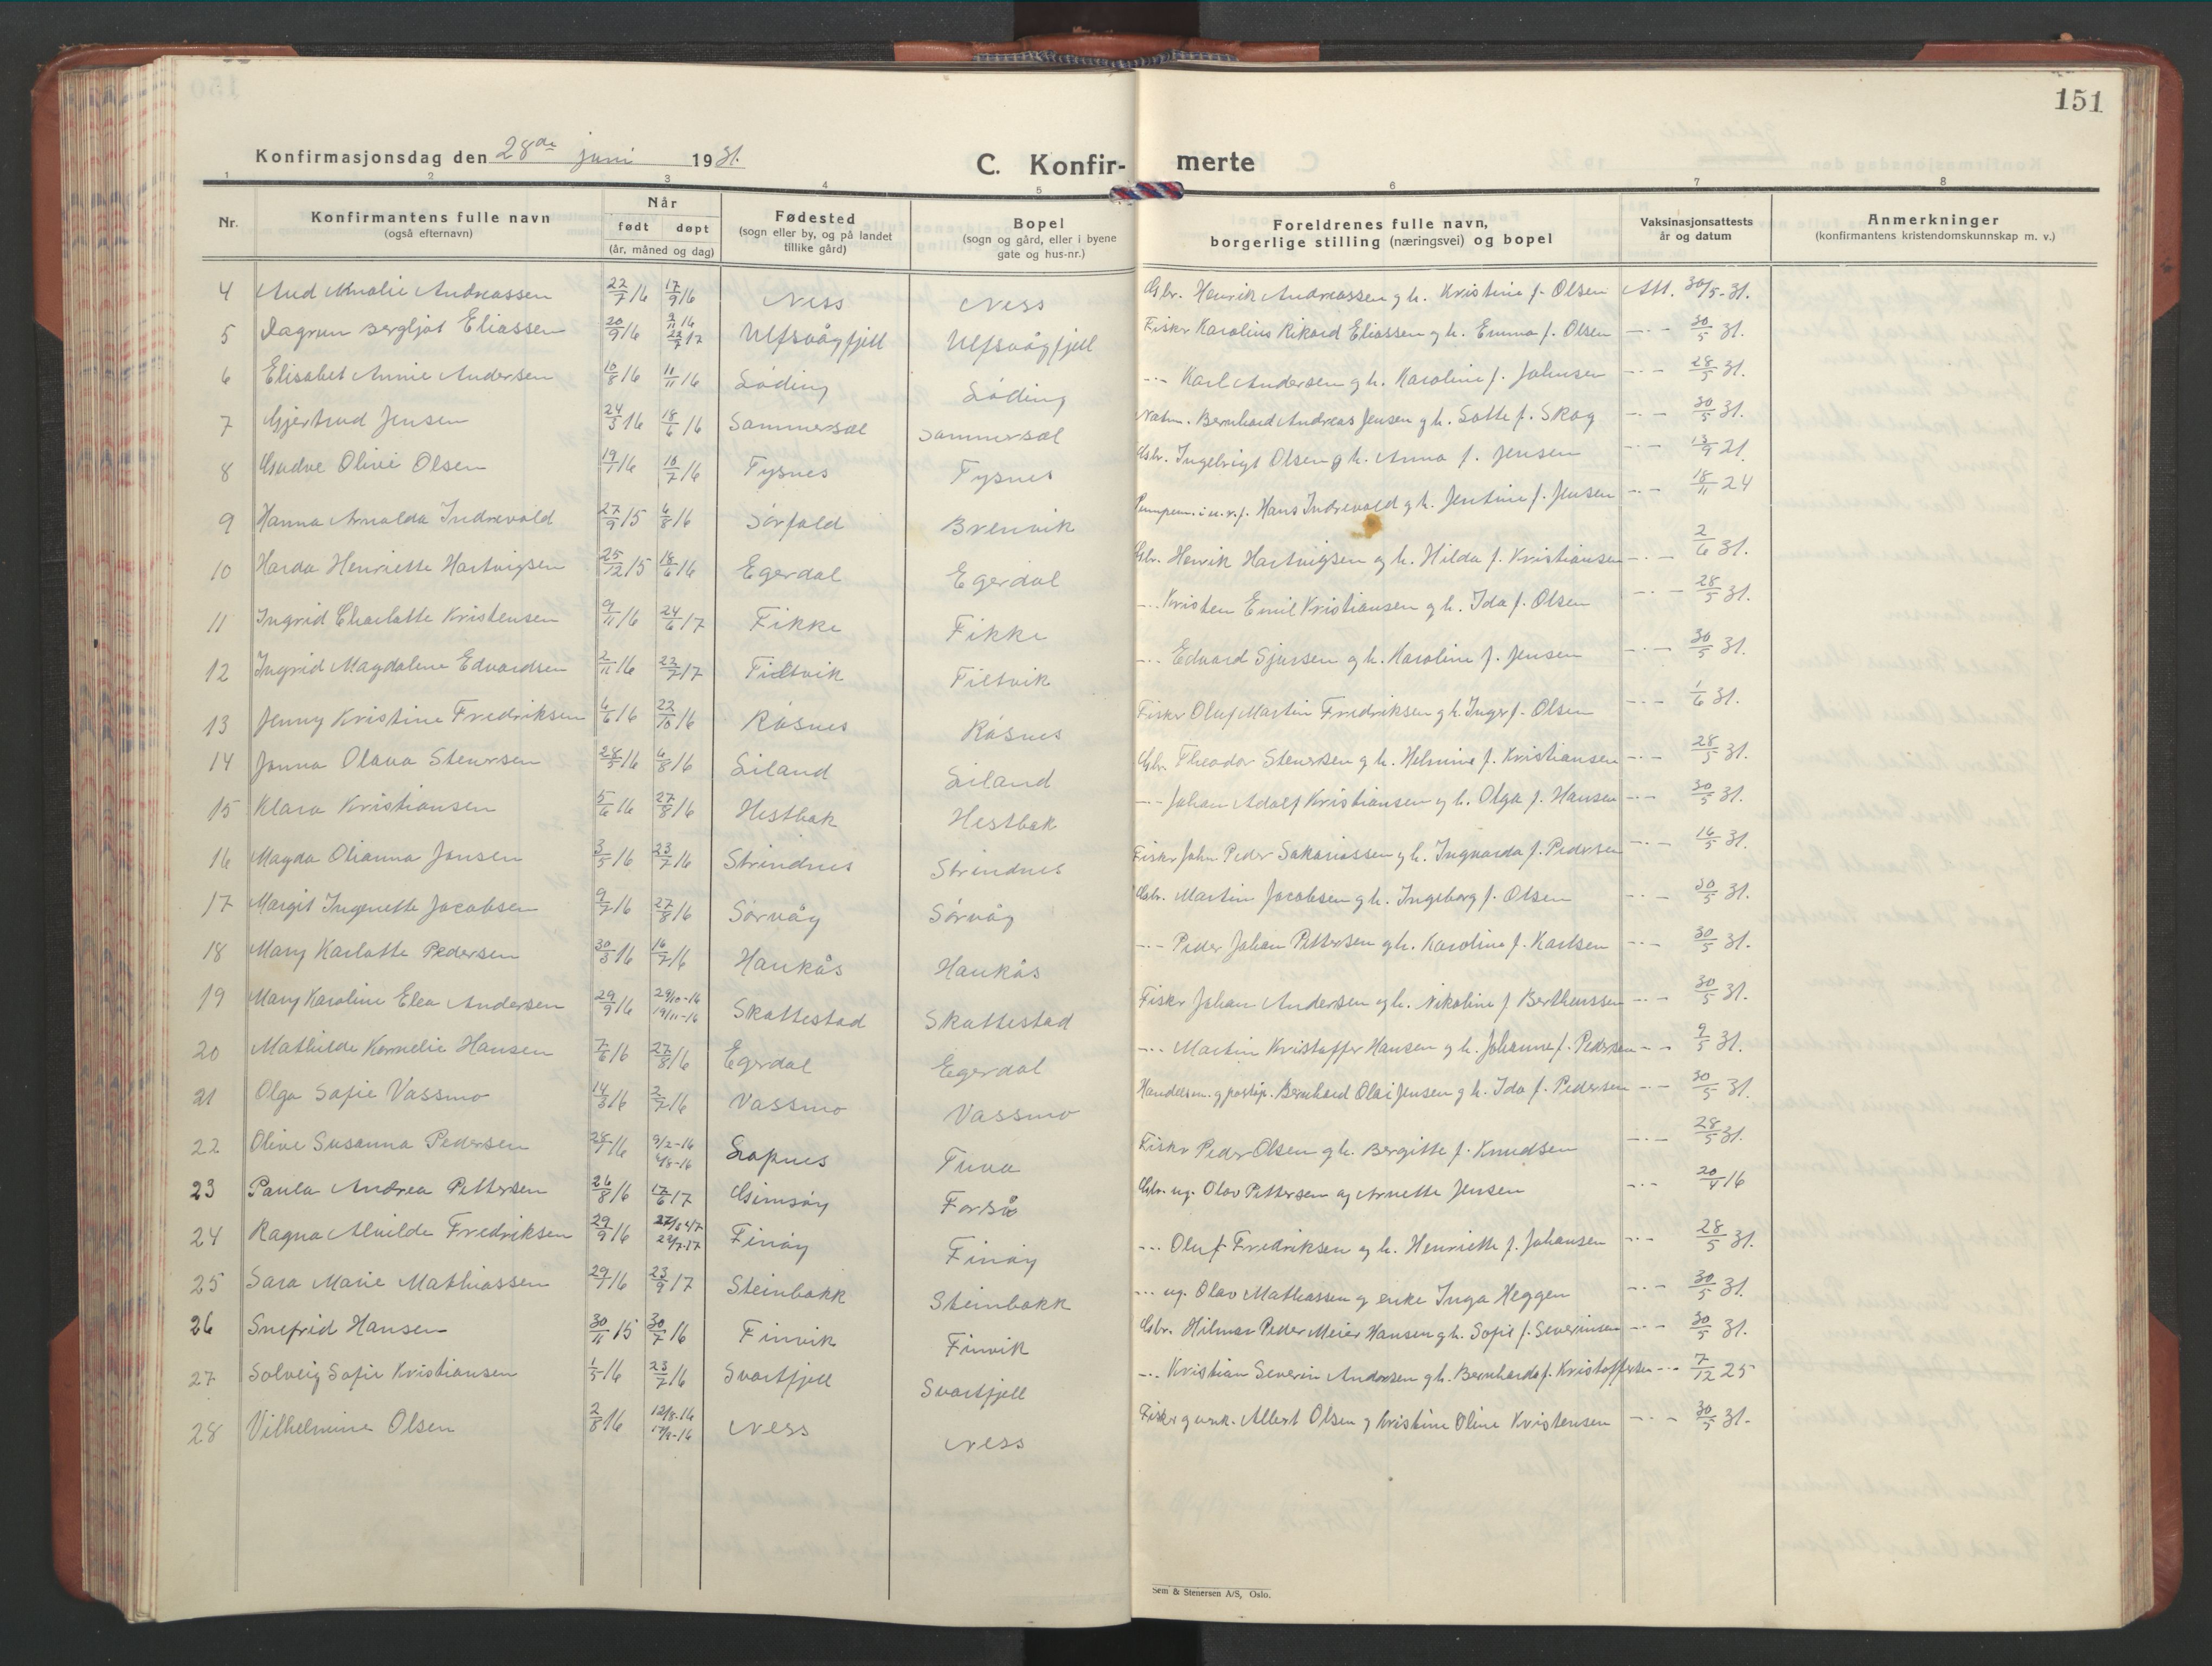 151
Konfirmasjonsdag den 28de juni 1931.
C. Konfir- merte
1 2 3 4 5 6 7 8
Nr. Konfirmantens fulle navn (også efternavn) Når født døpt (år, måned og dag) Fødested (sogn eller by, og på landet tillike gård) Bopel (sogn og gård, eller i byene gate og hus-nr.) Foreldrenes fulle navn, borgerlige stilling (næringsvei) og bopel Vaksinasjonsattests år og datum Anmerkninger (konfirmantens kristendomskunnskap m. v.)
4 Aud Amalie Andreassen 22/7 16 17/9 16 Ness Ness Gbr. Henrik Andreassen g h. Kristine f. Olsen Att. 30/5-31.
5 Dagrun Bergljot Eliassen 20/9 16 9/11 16 22/7 17 Ulfsvågfjell Ulfsvågfjell Fisker Karolius Rikard Eliassen g h. Emma f. Olsen -.- 30/5 31.
6 Elisabet Annie Andersen 10/8 16 11/11 16 Løding Løding -.- Karl Andersen g h. Karoline f. Johnsen -.- 28/5 31.
7 Gjertrud Jensen 24/3 16 18/6 16 Sommersel Sommersel Natm. Bernhard Andreas Jensen g h. Lotte f. Skog -.- 30/5 31.
8 Gudve Olivie Olsen 19/1 16 16/7 16 Tysnes Tysnes Gbr. Ingebrigt Olsen g h. Anna f. Jensen -.- 13/9 21.
9 Hanna Arnolda Indrevold 27/9 15 6/8 16 Sørfold Brenvik Hans Indrevold g h. Jentine f. Jensen -.- 18/11 24
10 Harda Henriette Hartvigsen 25/12 15 18/6 16 Egerdal Egerdal Gbr. Henrik Hartvigsen og h. Hilda f. Kristiansen -.- 2/6 31.
11 Ingrid Charlotte Kristensen 9/11 16 24/6 17 Fikke Fikke -.- Kristen Emil Kristiansen g h. Ida f. Olsen -.- 28/5 31.
12 Ingrid Magdalene Edvardsen 2/11 16 22/7 17 Tiltvik Tiltvik -.- Edvard Sjursen g h. Karoline f. Jensen -.- 30/5 31.
13 Jenny Kristine Fredriksen 6/6 16 22/10 16 Råsnes Råsnes Fisker Oluf Martin Fredriksen g h. Inger f. Olsen -.- 1/6 31.
14 Jonna Olava Stenersen 28/5 16 6/8 16 Liland Liland Gbr. Theodor Stenersen g h. Helmine f. Kristiansen -.- 28/5 31.
15 Klara Kristiansen 5/6 16 27/8 16 Hestbak Hestbak -.- Johan Adolf Kristiansen g h. Olga f. Hansen -.- 30/5 31.
16 Magda Olianna Jonsen 3/5 16 23/7 16 Strindnes Strindnes Fisker John Peder Sakariassen g h. Ingvarda f. Pedersen -.- 16/5 31.
17 Margit Ingenette Jacobsen 9/7 16 27/8 16 Sørvåg Sørvåg Gbr. Martin Jacobsen g h. Ingeborg f. Olsen -.- 30/5 31.
18 Mary Karlotte Pedersen 30/3 16 16/7 16 Haukås Haukås -.- Peder Johan Pettersen g h. Karoline f. Karlsen -.- 30/5 31.
19 Mary Karoline Elea Andersen 29/9 16 29/10-16 19/11-16 Skottestad Skottestad Fisker Johan Andersen g h. Nikoline f Bertheussen -.- 30/5 31.
20 Mathilde Kornelie Hansen 7/6 16 27/8 16 Egerdal Egerdal -.- Martin Kristoffer Hansen g h. Johanne f. Pedersen -.- 9/5 31.
21 Olga Sofie Vassmo 14/3 16 2/7 16 Vassmo Vassmo Handelsm. g postop. Bernhard Olai Jensen g h. Ida f. Pedersen -.- 30/5 31.
22 Olive Susanna Pedersen 28/1 16 9/2-16 6/8-16 Lapnes Tuva Fisker Peder Olsen g h. Bergitte f. Knudsen -.- 28/5 31.
23 Paula Andrea Pettersen 26/8 16 17/6 17 Gimsøy Forså Gbr. ug. Olav Pettersen og Arnette Jensen -.- 20/4 16
24 Ragna Alvilde Fredriksen 29/9 16 22/7-17 Finøy Finøy -.- Oluf Fredriksen g h. Henriette f. Johansen -.- 28/5 31.
25 Sara Marie Mathiassen 29/1 16 23/9 17 Steinbakk Steinbakk -.- ug. Olav Mathiassen g enke Inga Heggen -.- 30/5 31.
26 Snefrid Hansen 30/11 15 30/7 16 Finvik Finvik Gbr. Hilmar Peder Meier Hansen g h. Sofie f. Severinsen -.- 30/5 31.
27 Solveig Sofie Kristiansen 1/5 16 23/7 16 Svartfjell Svartfjell -.- Kristian Severin Andersen g h. Bernharda f. Kristoffersen -.- 7/12 25
28 Vilhelmine Olsen 2/8 16 12/8-16 17/9-16 Ness Ness Fisker g unk. Albert Olsen g Kristine Oline Kristensen -.- 30/5 31.
Sem & Stenersen A/S, Oslo.